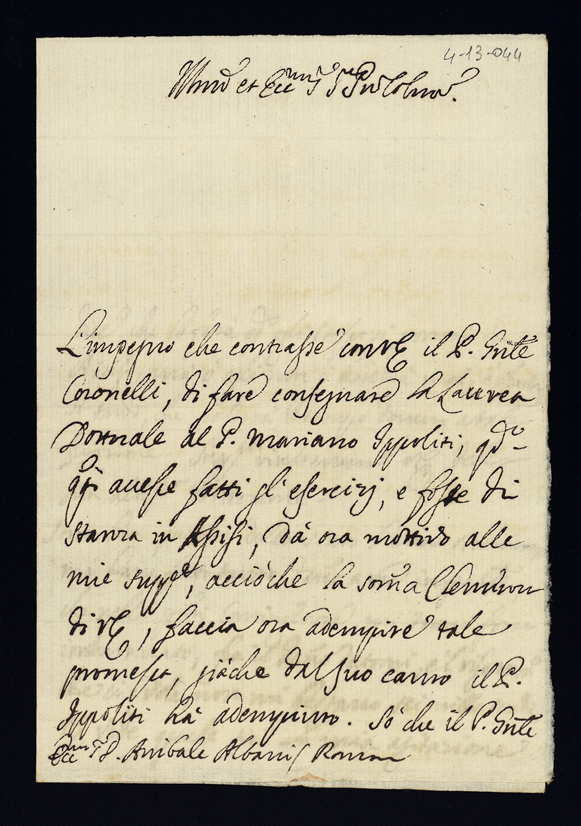 4-13-044
Ill.mo et Ecc.mo Sig. Sig. P.ron Col.mo
L'impegno che contrasse con VE il P. Gnle
Coronelli, di fare consegnare la Laurea
Dottorale al P. Mariano Ippoliti, qdo
qsti avesse fatti gl'esercizj, e fosse di
stanza in Assisi, dà ora motivo alle
mie suppe, acciòche la somma Clemenza
di VE, faccia ora adempire tale
promessa, giàche dal suo canto il P.
Ippoliti hà adempiuto. Sò che il P. Gnle
Ecc.mo Sig. D. Anibale Albani / Roma